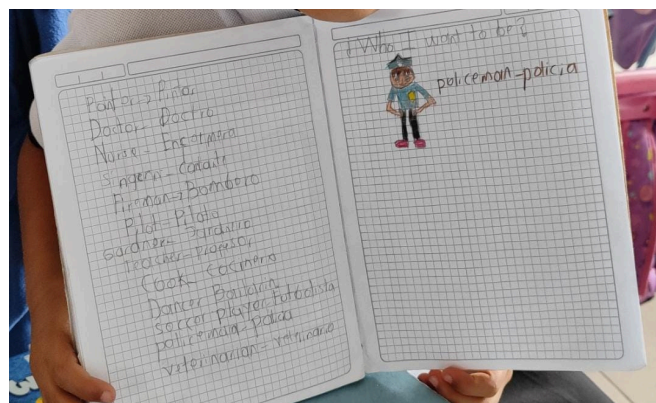 Painter - Pintar
Doctor - Doctro
Nurse - Enfermera
Singern - Cantante
Fireman - Bombero
Pilot - Piloto
Gardner - Jardinero
teacher - profesor
Cook - Cocinero
Dancer Bailarin
soccer player futbolista
policeman - policia
veterinarian - vetrinario
¿Who I want to be?
policeman - policia